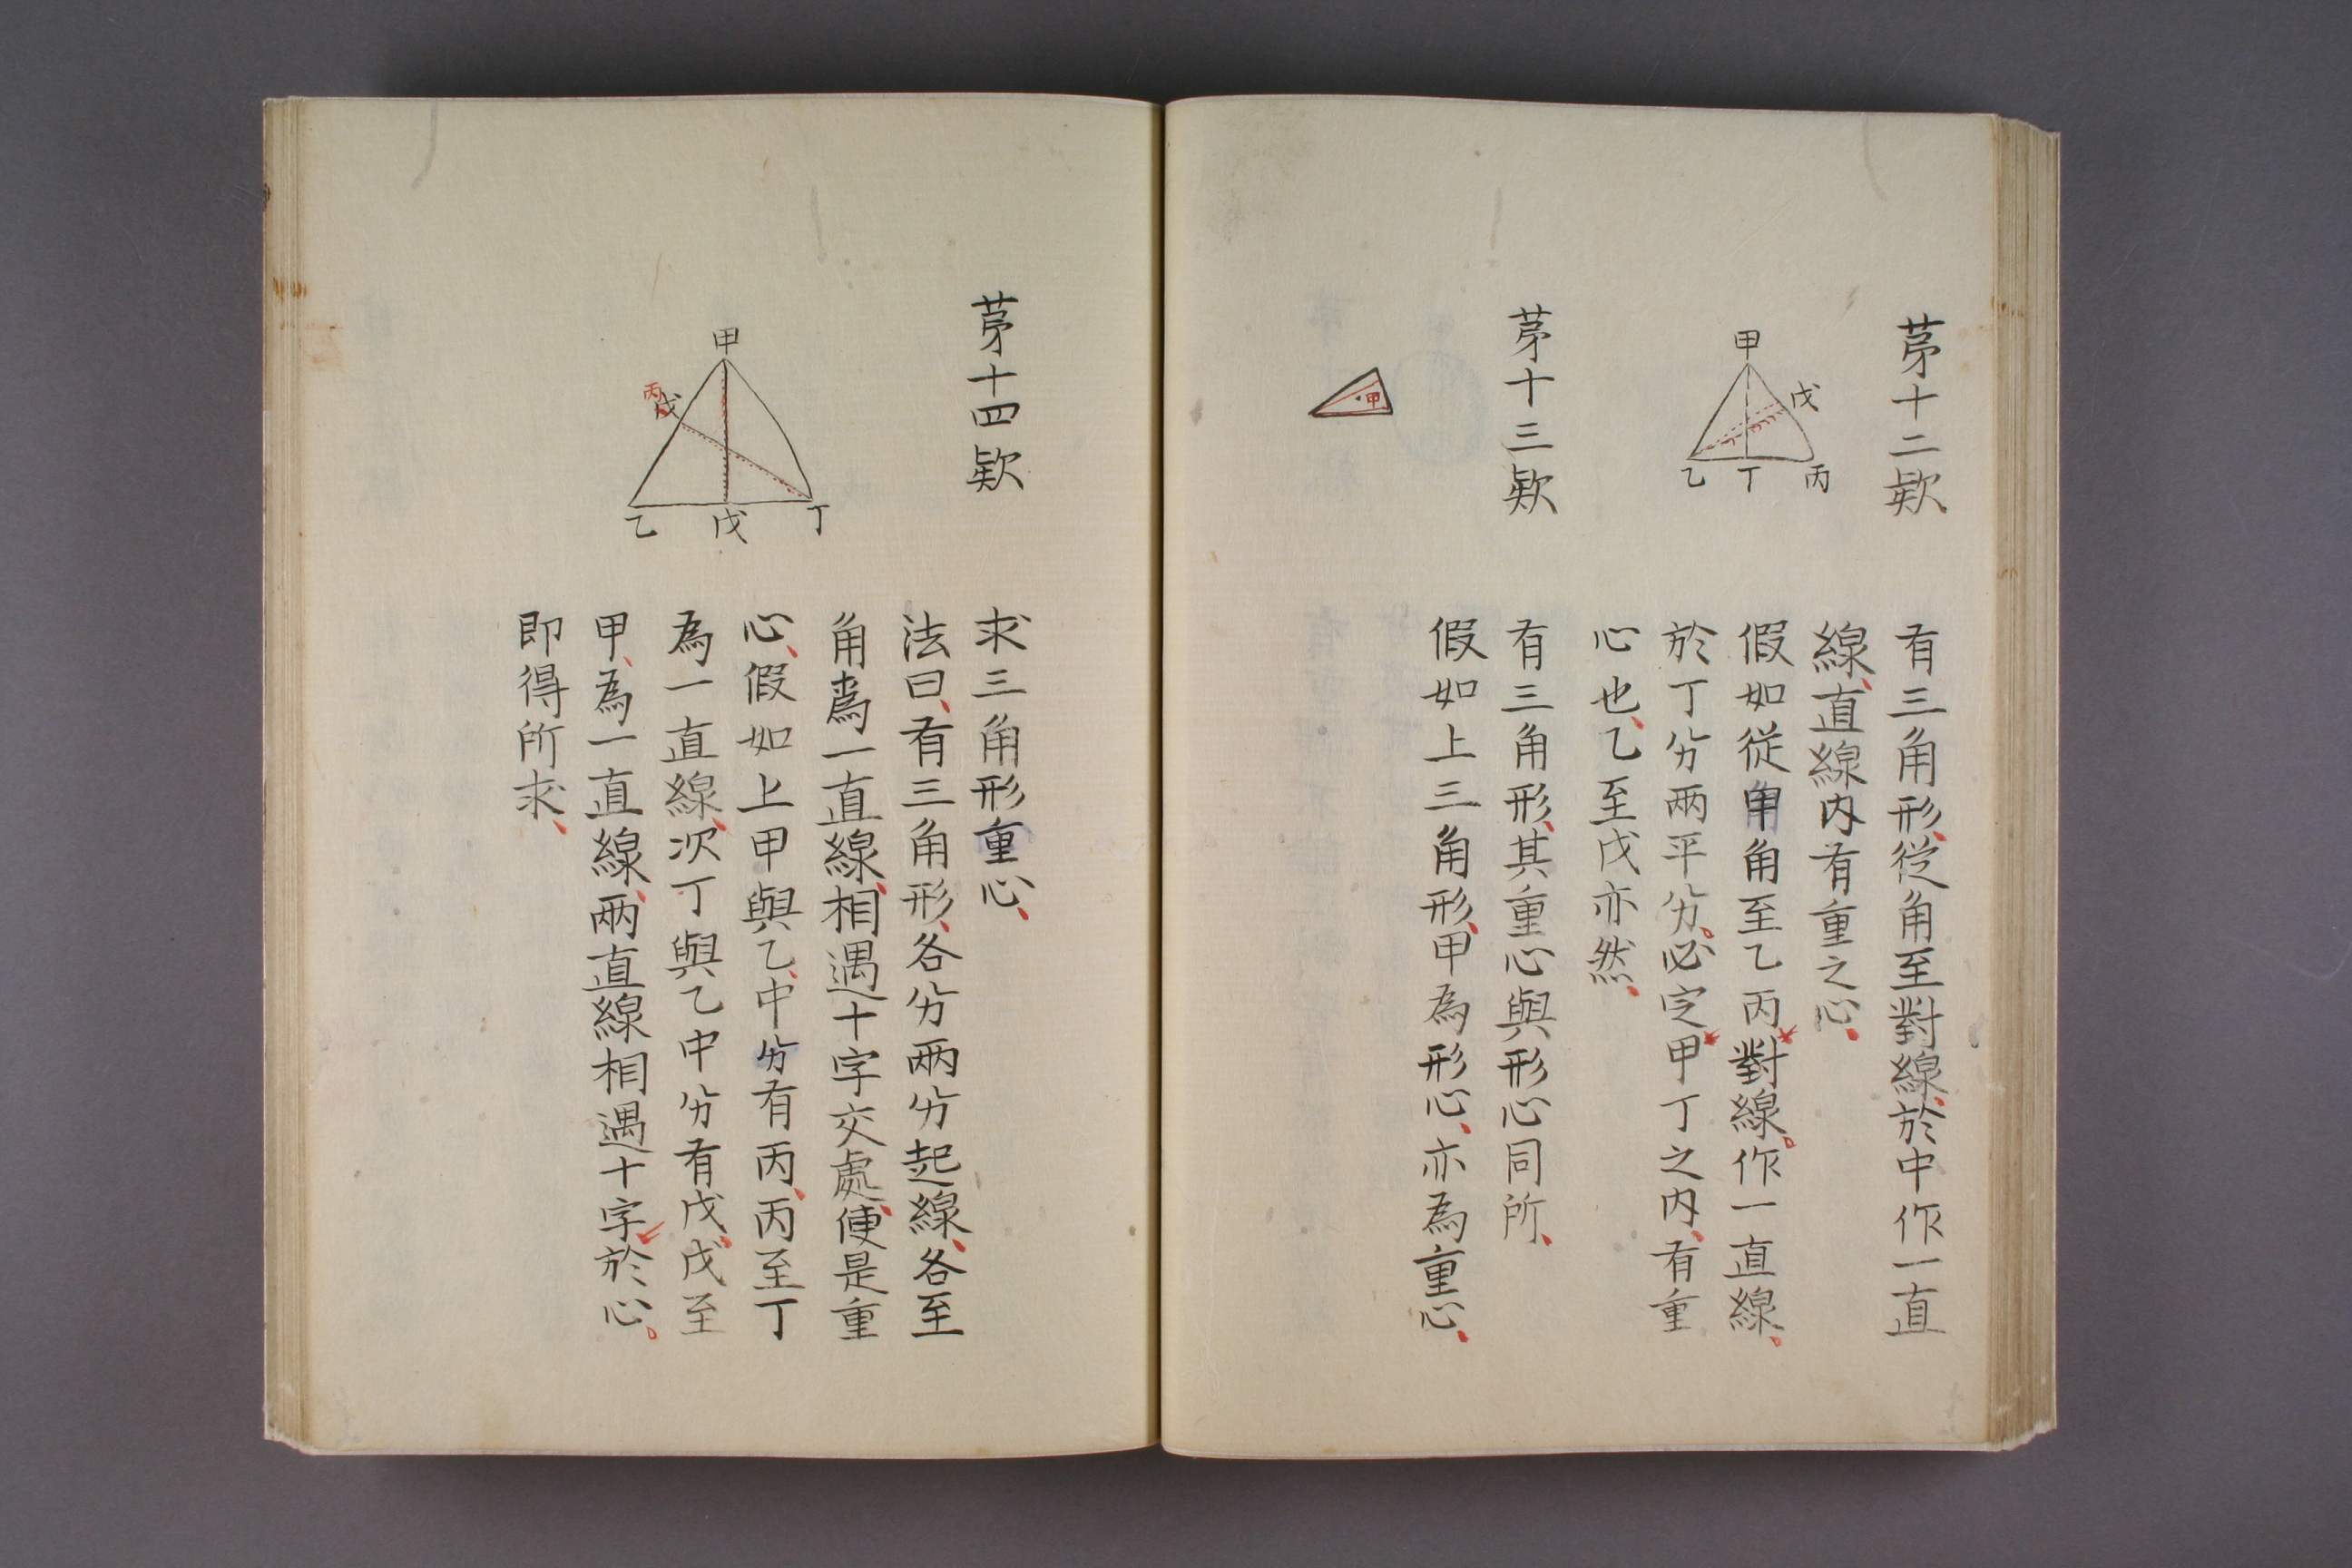 苐十二欵
甲
戊
乙
丁
丙
有三角形、從角至對線、於中作一直
線、直線内有重之心、
假如從甲角至乙丙對線。作一直線、
於丁分兩平分。必定甲丁之内、有重
心也、乙至戊亦然、
苐十三欵
甲
有三角形、其重心與形心同所、
假如上三角形、甲為形心、亦為重心、
苐十四欵
甲
丙
戊
乙
戊
丁
求三角形重心、
法曰、有三角形、各分两分起線、各至
角為一直線、相遇十字交處、便是重
心、假如上甲與乙、中分有丙、丙至丁
為一直線、次丁與乙中分有戊、戊至
甲、為一直線、兩直線相遇十字於心。
即得所求、